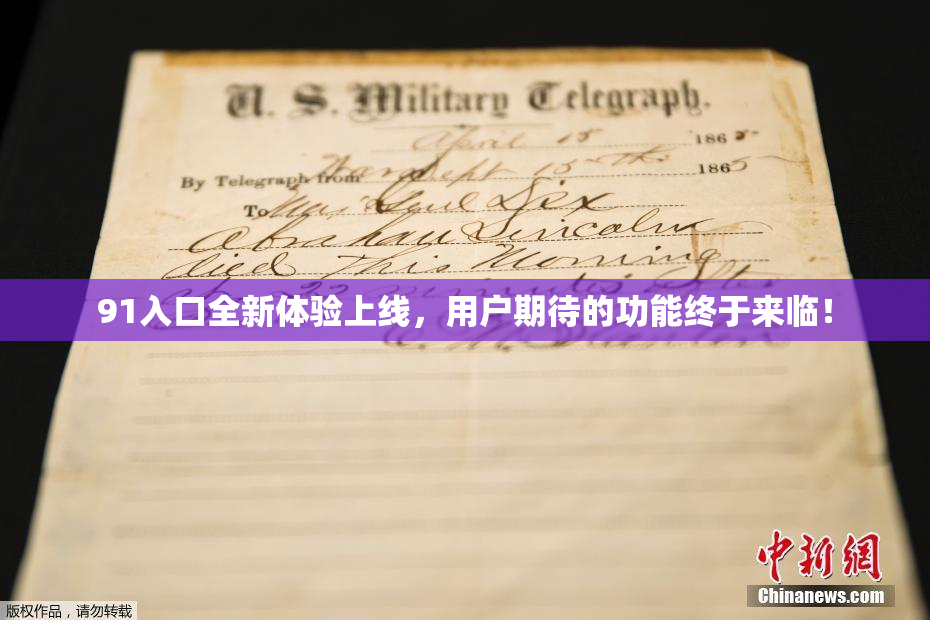 U. S. Military Telegraph.
April 15 1865
By Telegraph from War Dept 15th 1865
To Maj Genl Dix
Abraham Lincoln
died This Morning
22 minutes after
91入口全新体验上线，用户期待的功能终于来临！
E. M. Stanton
中新网
Chinanews.com
版权作品，请勿转载